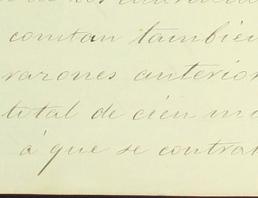 constan tambien
razones anterior
total de cien m
á que se contra